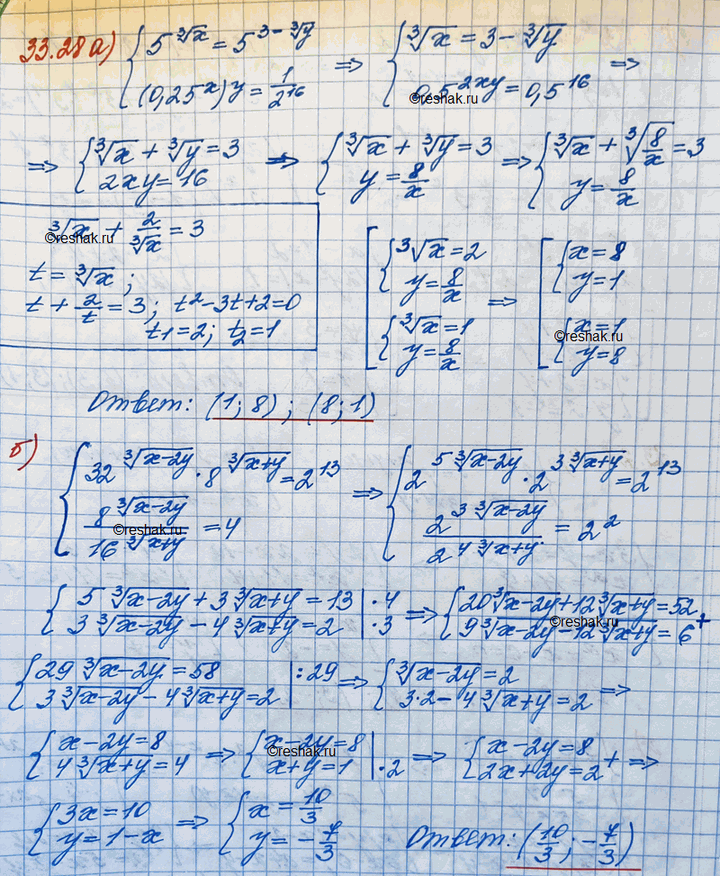 33.28 а) { 5^∛x = 5^(3-∛y) ; (0,25^x)^y = 1/2^16 ⇒ { ∛x = 3 - ∛y ; 0,5^2xy = 0,5^16 ⇒
reshak.ru
⇒ { ∛x + ∛y = 3 ; 2xy = 16 ⇒ { ∛x + ∛y = 3 ; y = 8/x ⇒ { ∛x + ∛(8/x) = 3 ; y = 8/x
∛x + 2/∛x = 3
reshak.ru
t = ∛x ;
t + 2/t = 3 ; t² - 3t + 2 = 0
t₁ = 2 ; t₂ = 1
[ { ∛x = 2 ; y = 8/x { ∛x = 1 ; y = 8/x ⇒ [ { x = 8 ; y = 1 { x = 1 ; y = 8
reshak.ru
Ответ: (1; 8) ; (8; 1)
б) { 32^∛(x-2y) · 8^∛(x+y) = 2^13 ; 8^∛(x-2y) / 16^∛(x+y) = 4 ⇒ { 2^5∛(x-2y) · 2^3∛(x+y) = 2^13 ; 2^3∛(x-2y) / 2^4∛(x+y) = 2²
reshak.ru
{ 5∛(x-2y) + 3∛(x+y) = 13 | ·4 ; 3∛(x-2y) - 4∛(x+y) = 2 | ·3 ⇒ { 20∛(x-2y) + 12∛(x+y) = 52 ; 9∛(x-2y) - 12∛(x+y) = 6 +
reshak.ru
{ 29∛(x-2y) = 58 | :29 ; 3∛(x-2y) - 4∛(x+y) = 2 ⇒ { ∛(x-2y) = 2 ; 3·2 - 4∛(x+y) = 2 ⇒
{ x-2y = 8 ; 4∛(x+y) = 4 ⇒ { x-2y = 8 ; x+y = 1 | ·2 ⇒ { x-2y = 8 ; 2x+2y = 2 + ⇒
reshak.ru
{ 3x = 10 ; y = 1-x ⇒ { x = 10/3 ; y = -7/3
Ответ: (10/3 ; -7/3)